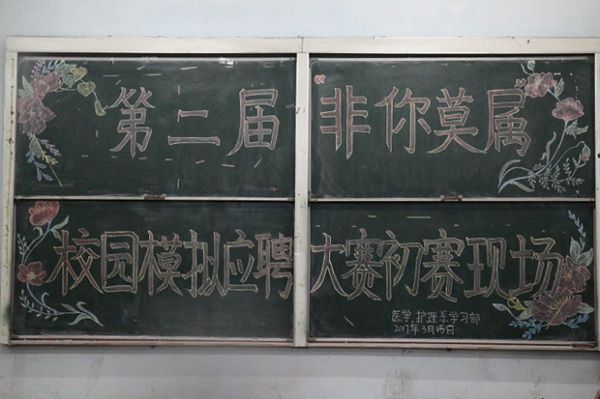 第二届 非你莫属
校园模拟应聘大赛初赛现场
医学、护理系学习部
2017年3月15日